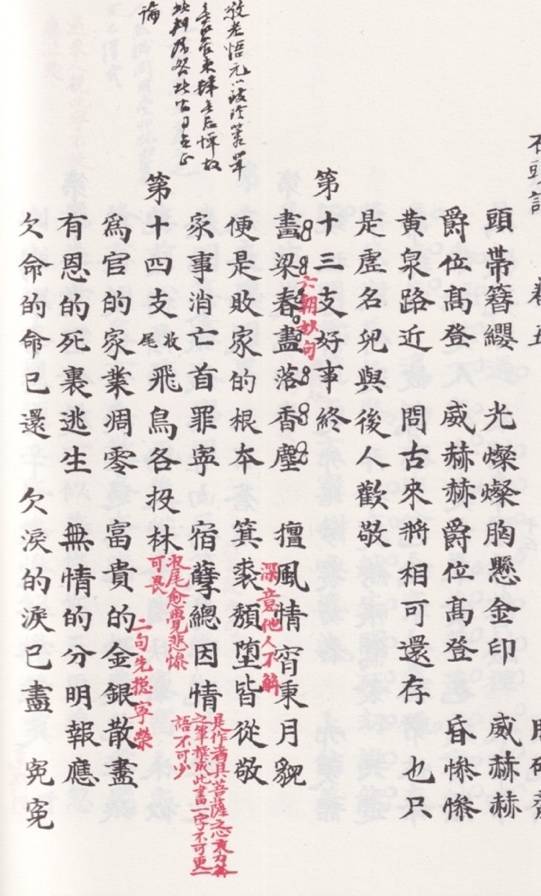 石頭記 卷五 脂硯齋
頭帶簪纓 光燦燦胸懸金印 威赫赫
爵位高登 威赫赫爵位高登 昏慘慘
黃泉路近 問古來將相可還存 也只
是虛名兒與後人歡敬
第十三支好事終
畫梁春盡落香塵 擅風情宵秉月貌
六朝妙句
便是敗家的根本 箕裘頹墮皆從敬
深意他人不解
家事消亡首罪寧 宿孽總因情
是作者具菩薩之心秉刀斧
之筆撰成此書一字不可更一
語不可少
敬老悟元以致珍蓉輩
无以管束肆无忌憚故
此判歸咎此公自是正
論
第十四支收尾飛鳥各投林
收尾愈覺悲慘
可畏
為官的家業凋零 富貴的金銀散盡
二句先總寧榮
有恩的死裏逃生 無情的分明報應
欠命的命已還 欠淚的淚已盡 冤冤